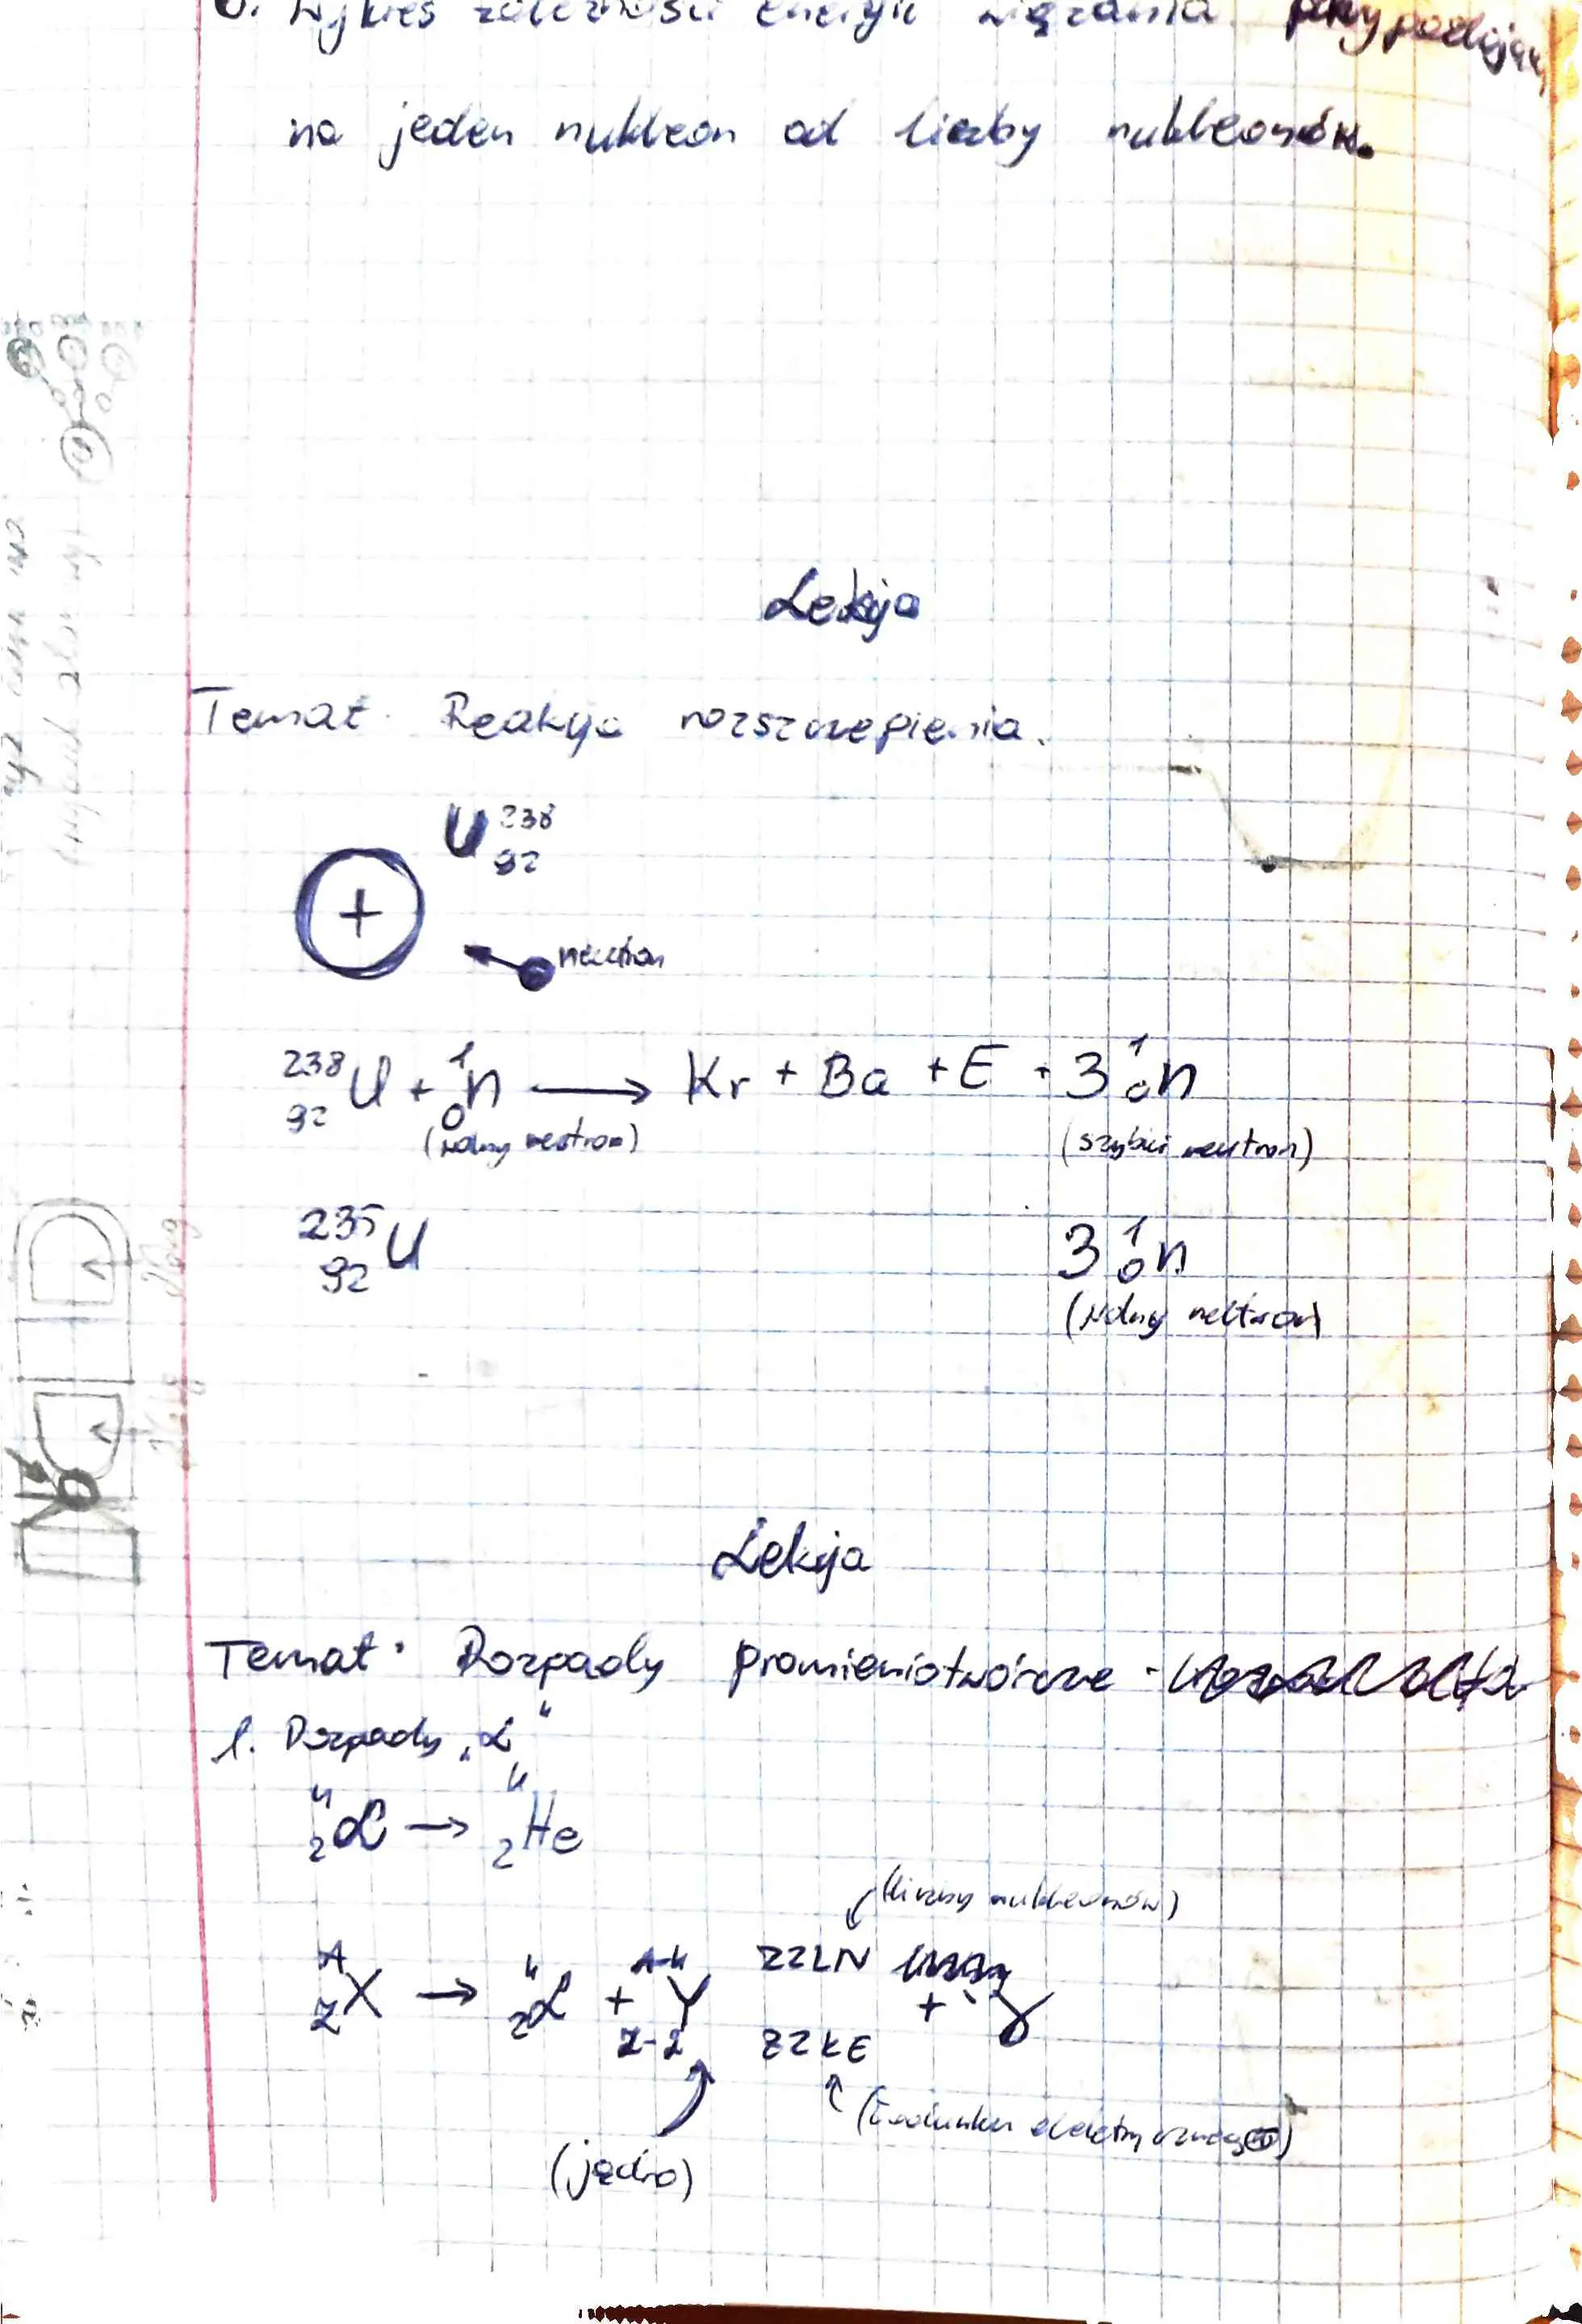 6. Wykres zależności energii wiązania przypadającej
na jeden nukleon od liczby nukleonów.
Lekcja
Temat: Reakcja rozszczepienia.
U 238 92
+
neutron
238 92 U + 1 0 n → Kr + Ba + E + 3 1 0 n
(wolny neutron) (szybki neutron)
235 92 U 3 1 0 n
(wolny neutron)
Lekcja
Temat: Rozpady promieniotwórcze -
1. Rozpady "α"
4 2 α → 4 2 He
(liczby nukleonów)
A Z X → 4 2 α + A-4 Z-2 Y ZZLN + γ
ZZŁE
(ładunku elektrycznego)
(jądro)